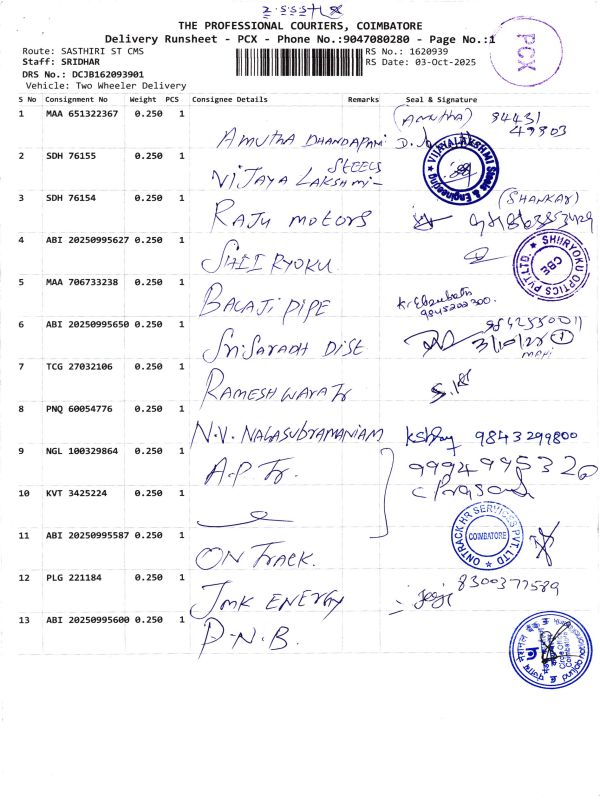 THE PROFESSIONAL COURIERS, COIMBATORE
Delivery Runsheet - PCX - Phone No.:9047080280 - Page No.:1
PCX
Route: SASTHIRI ST CMS
RS No.: 1620939
Staff: SRIDHAR
RS Date: 03-Oct-2025
DRS No.: DCJB162093901
Vehicle: Two Wheeler Delivery
S No Consignment No Weight PCS Consignee Details Remarks Seal & Signature
1 MAA 651322367 0.250 1 AMUTHA DHANDAPANI (AMUTHA) 94431 49803
2 SDH 76155 0.250 1 VIJAYA LAKSHMI STEELS
VIJAYALAKSHMI Steels & Engineering
3 SDH 76154 0.250 1 RAJU MOTORS (SHANKAR)
4 ABI 20250995627 0.250 1 SHII RYOKU.
SHIIRYOKU OPTICS PVT.LTD. CBE
5 MAA 706733238 0.250 1 BALAJI PIPE 9845202300.
6 ABI 20250995650 0.250 1 Sri Saradh DIST 9842550011 3/10/25 1
7 TCG 27032106 0.250 1 RAMESHWARA Tr
8 PNQ 60054776 0.250 1 N.V. NAGASUBRAMANIAM 9843299800
9 NGL 100329864 0.250 1 A.P Tr. 9994995320
10 KVT 3425224 0.250 1 C Prasad
11 ABI 20250995587 0.250 1 ON Track.
ONTRACK HR SERVICES PVT. LTD COIMBATORE
12 PLG 221184 0.250 1 JMK ENERGY 8300377589
13 ABI 20250995600 0.250 1 P.N.B.
punjab national